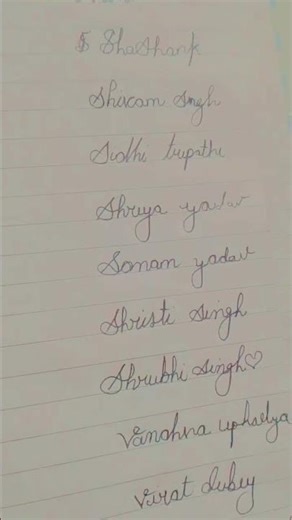 Shashank
Shivam Singh
Sidhi tripathi
Shreya yadav
Sonam yadav
Shristi Singh
Shrubhi Singh♡
Vandhna
Virat dubey